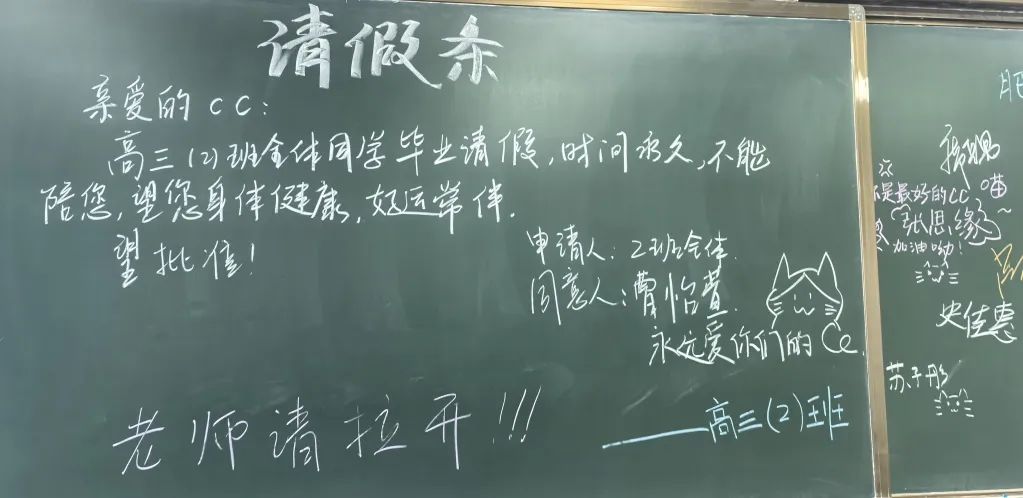 请假条
亲爱的CC:
高三(2)班全体同学毕业请假,时间永久,不能
陪您,望您身体健康,好运常伴.
望批准!
申请人:2班全体.
同意人:曹怡萱.
永远爱你们的Cc.
老师请拉开!!!
——高三(2)班
是最好的CC
喵~
张思缘
加油呦!
史佳惠
苏子彤